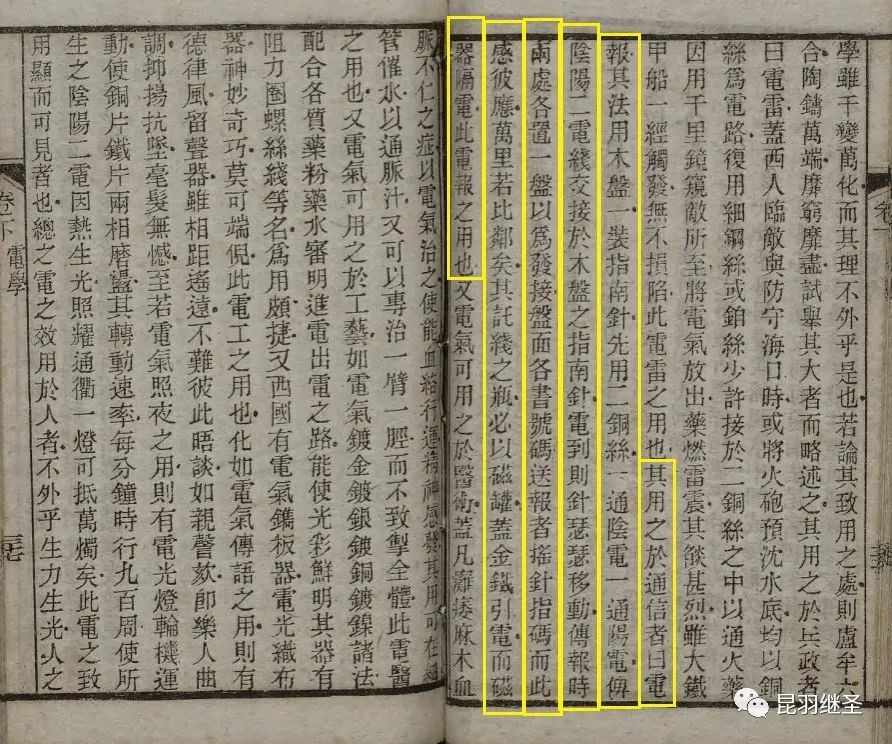 學雖千變萬化而其理不外乎是也若論其致用之處則盧牟六
合陶鑄萬端靡窮靡盡試舉其大者而略述之其用之於兵政者
曰電雷蓋西人臨敵與防守海口時或將火砲預沈水底均以銅
絲爲電路復用細鋼絲或鉑絲少許接於二銅絲之中以通火藥
因用千里鏡窺敵所至將電氣放出藥燃雷震其燄甚烈雖大鐵
甲船一經觸發無不損陷此電雷之用也其用之於通信者曰電
報其法用木盤一裝指南針先用二銅絲一通陰電一通陽電傳
陰陽二電綫交接於木盤之指南針電到則針瑟瑟移動傳報時
兩處各置一盤以爲發接盤面各書號碼送報者搖針指碼而此
感彼應萬里若比鄰矣其託綫之瓶必以磁罐蓋金鐵引電而磁
器隔電此電報之用也又電氣可用之於醫術蓋凡癱痿麻木血
脈不仁之症以電氣治之使能血給行運精神感發其用可在
管催水以通脈汁又可以專治一臂一脛而不致掣全體此電醫
之用也又電氣可用之於工藝如電氣鍍金鍍銀鍍銅鍍鎳諸法
配合各質藥粉藥水審明進電出電之路能使光彩鮮明其器有
阻力圈螺絲綫等名爲用頗捷又西國有電氣鐫板器電光織布
器神妙奇巧莫可端倪此電工之用也化如電氣傳語之用則有
德律風留聲器雖相距遙遠不難彼此晤談如親謦欬卽樂人曲
調抑揚抗墜毫髮無憾至若電氣照夜之用則有電光燈輪機運
動使銅片鐵片兩相磨盪其轉動速率每分鐘時行九百周使所
生之陰陽二電因熱生光照耀通衢一燈可抵萬燭矣此電之致
用顯而可見者也總之電之效用於人者不外乎生力生光人之
卷下 電學
昆羽继圣